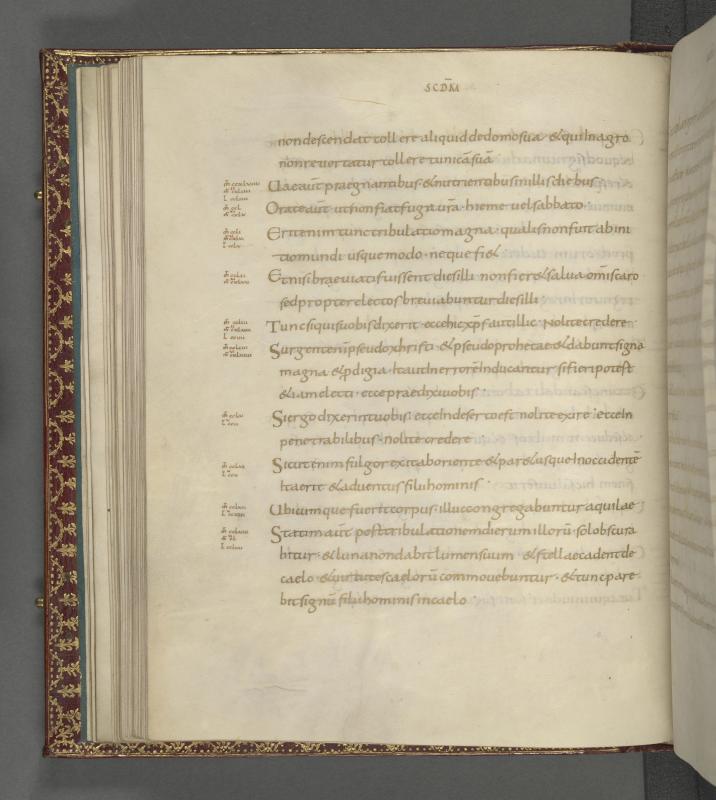 SCDM
non descendat tollere aliquid dedomosua &quilnagro
nonreuertatur tollere tunicā suā
Uaeaut praegnantibus &nutrientibus inillis diebus
Orate aut utnonfiat fuga urā hieme uel sabbato
Erit enim tunc tribulatio magna qualis nonfuit abini
tio mundi usque modo neque fi&
Etnisi breuiati fuissent dies illi nonfier& salua omīs caro
sed propter electos breuiabuntur dies illi
Tunc siquis uobis dixerit ecce hic xp̄s aut illic Nolite credere
Surgent enī pseudoxhristi &pseudoprophetae &dabunt signa
magna &pdigia Ita utIn errorē Inducantur sifieri potest
&iam electi ecce praedixi uobis
Siergo dixerint uobis ecce Indeserto est nolite exire ecceIn
penetrabilibus nolite credere
Sicut enim fulgor exit aboriente &par& usque Inoccidentē
Ita erit &aduentus filii hominis
Ubicumque fuerit corpus illuc congregabuntur aquilae
Statim aut post tribulationem dierum illorū sol obscura
bitur &luna nondabit lumen suum &stellae cadent de
caelo &uirtutes caelorū commouebuntur &tunc pare
bit signū filii hominis incaelo